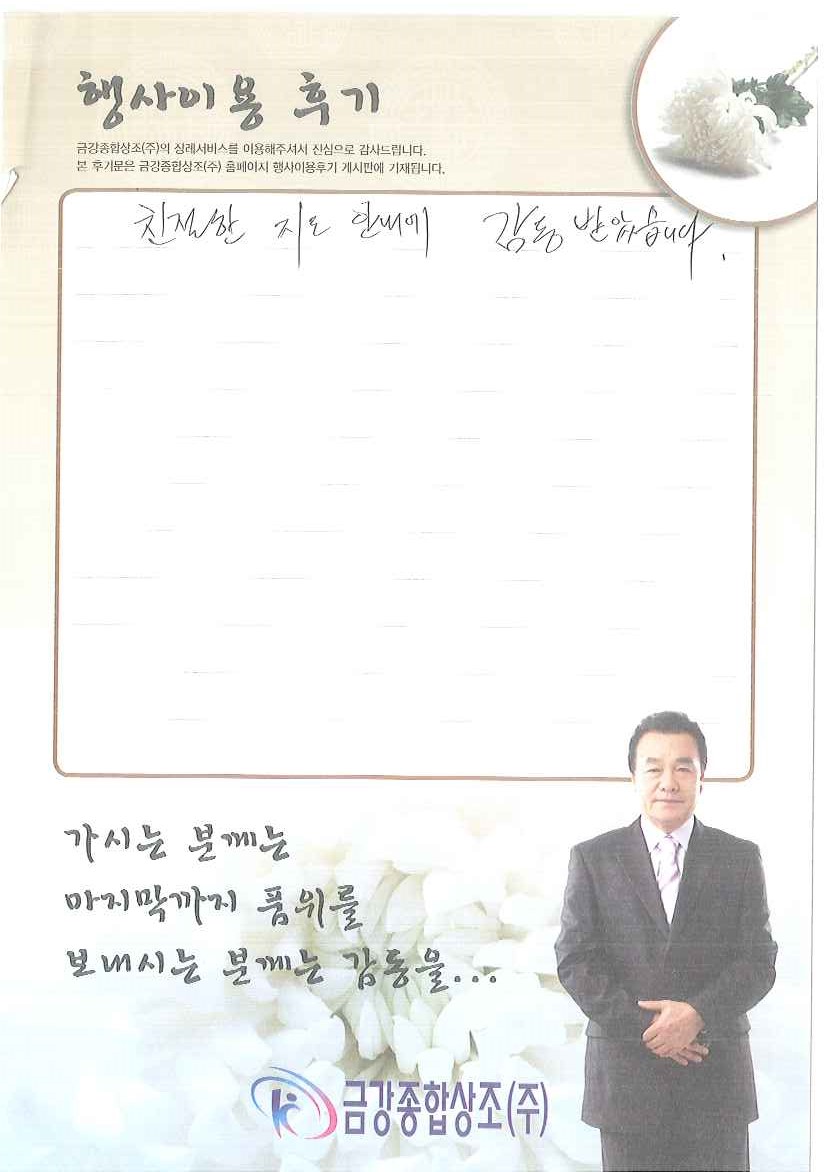 행사이용 후기
금강종합상조(주)의 장례서비스를 이용해주셔서 진심으로 감사드립니다.
본 후기문은 금강종합상조(주) 홈페이지 행사이용후기 게시판에 기재됩니다.
친절한 지도 안내에 감동 받았습니다.
가시는 분께는
마지막까지 품위를
보내시는 분께는 감동을...
금강종합상조(주)